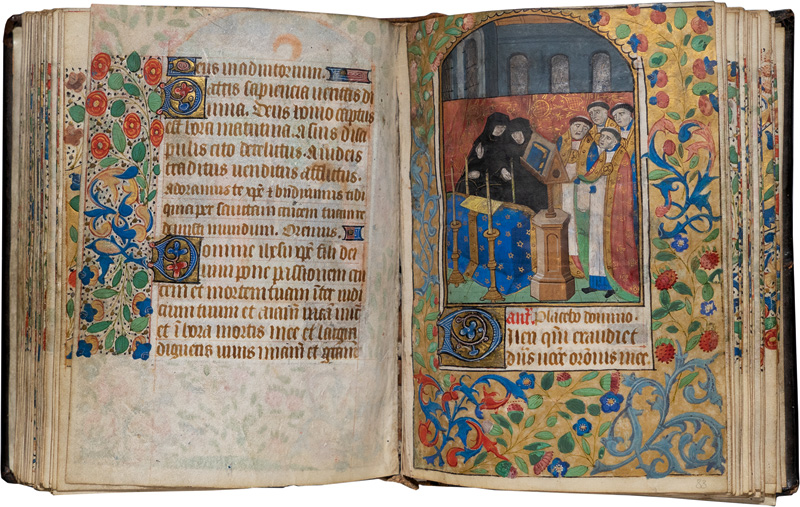 Deus in adiutorium.
Patris sapiencia ueritas di
uina. Deus homo captus
est hora matutina. A suis disci
pulis cito derelictus. A iudeis
traditus uenditus afflictus.
Adoramus te xpe et bndicimus tibi
quia per sanctam crucem tuam re
demisti mundum. Oremus.
Domine ihu xpe fili dei
uiui pone passionem cru
cem et mortem tuam inter iudi
cium tuum et aiam meam nunc
et in hora mortis mee et largiri
digneris uiuis miam et gram
ant. Placebo domino.
Dilexi qm exaudiet
dns uocem oronis mee